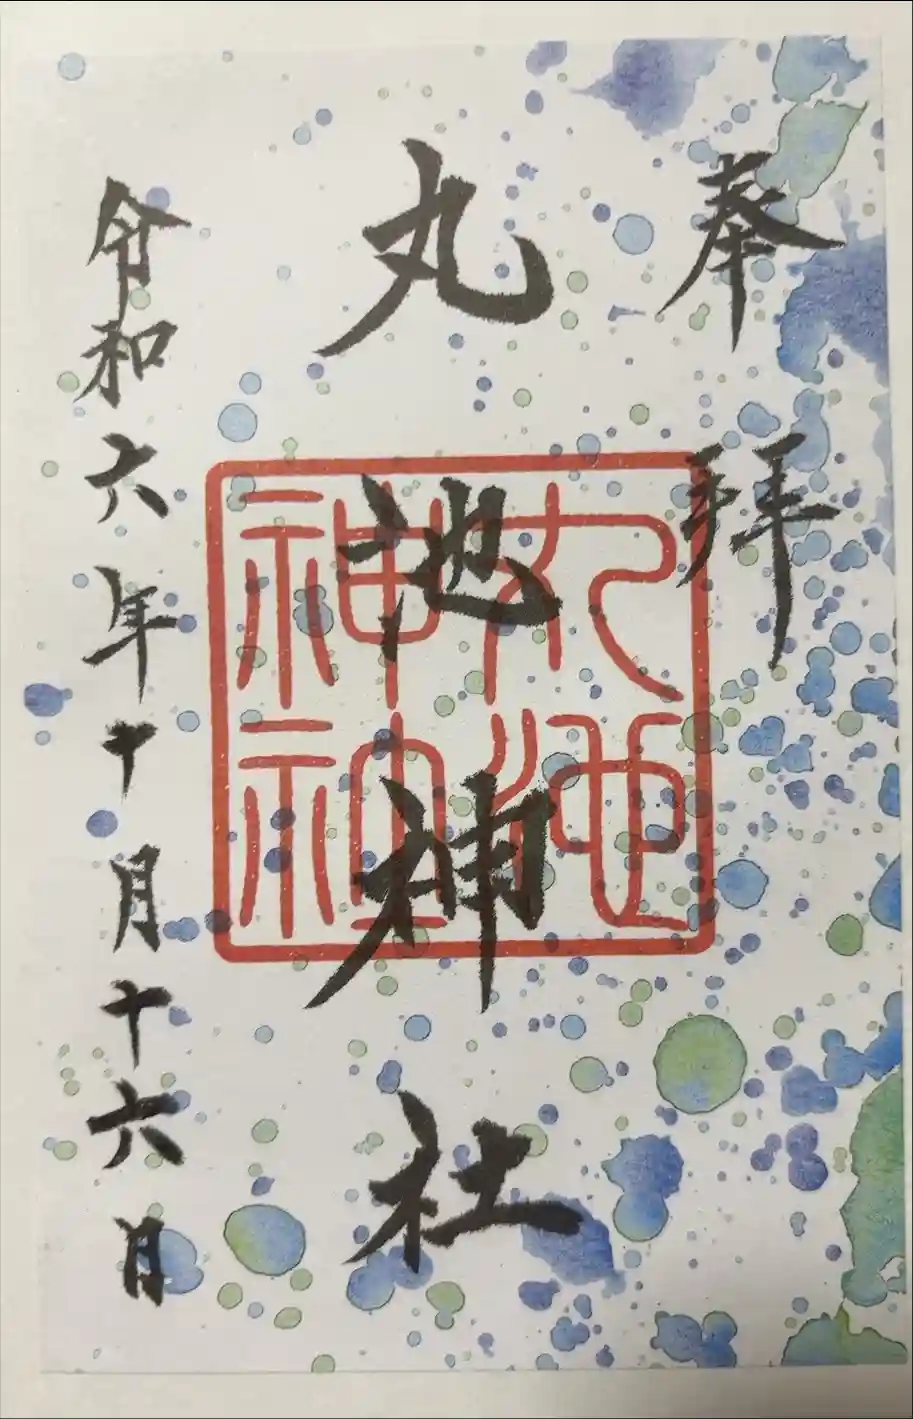 奉拝
丸池神社
丸池神社
令和六年十月十六日